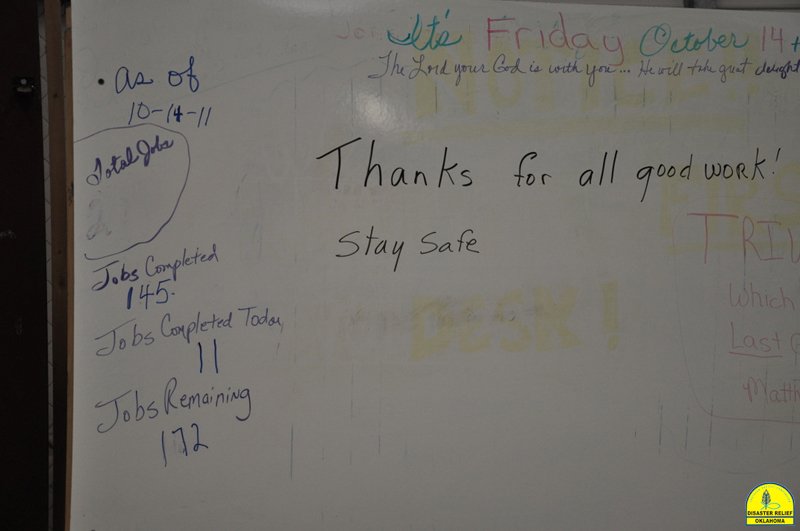 It's Friday October 14th
The Lord your God is with you... He will take great delight
• as of
10-14-11
Total Jobs
Thanks for all good work!
Stay Safe
TRIV
Jobs Completed
145.
Which
Jobs Completed Today
Last
11
Matth
Jobs Remaining
172
Desk!
DISASTER RELIEF
OKLAHOMA